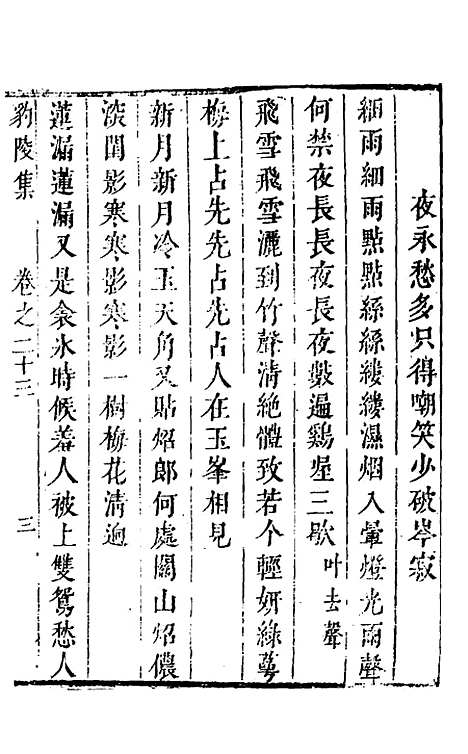 夜永愁多只得嘲笑少破岑寂
細雨細雨點點絲絲縷縷濕烟入暈燈光雨聲
何禁夜長長夜長夜數遍鷄星三歇叶去聲
飛雪飛雪灑到竹聲清絕體致若个輕妍綠萼
梅上占先先占先占人在玉峯相見
新月新月冷玉天角叉貼炤郎何處關山炤儂
淡閨影寒寒影寒影一樹梅花清逈
蓮漏蓮漏又是衾氷時候羞人被上雙鴛愁人
豹陵集 卷之二十三 三